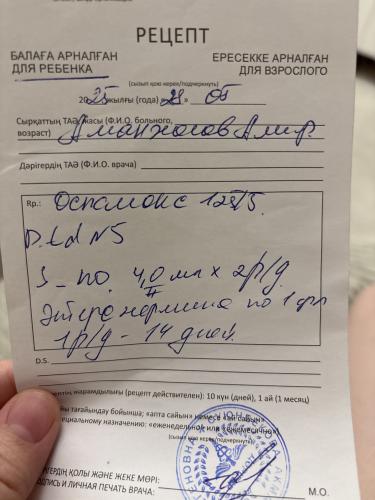 РЕЦЕПТ
БАЛАҒА АРНАЛҒАН ЕРЕСЕККЕ АРНАЛҒАН
ДЛЯ РЕБЕНКА ДЛЯ ВЗРОСЛОГО
(сызып қою керек/подчеркнуть)
2025 жылғы (года) «29» 05
Сырқаттың ТАӘ, жасы (Ф.И.О. больного,
возраст) Аманжолов Амир.
Дәрігердің ТАӘ (Ф.И.О. врача)
Rp.: Оспамокс 125/5.
D.t.d N5
S_ по 4,0 мл х 2р/д
Энтерожермина по 1 фл
1р/д - 14 дней.
D.S.
жарамдылығы (рецепт действителен): 10 күн (дней), 1 ай (1 месяц)
тағайындау бойынша: «апта сайын» немесе «ай сайын»
назначению: «еженедельно»
(сызып қою керек/подчеркнуть)
ҚОЛЫ ЖӘНЕ ЖЕКЕ МӨРІ:
И ЛИЧНАЯ ПЕЧАТЬ ВРАЧА: М.О.